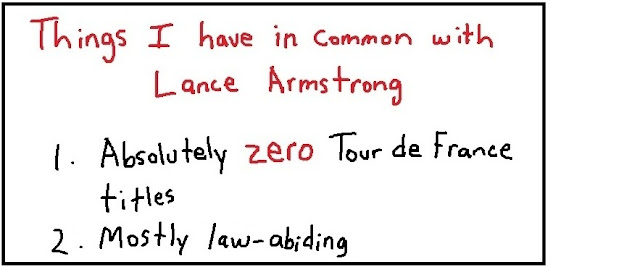 Things I have in common with
Lance Armstrong
1. Absolutely zero Tour de France
titles
2. Mostly law-abiding